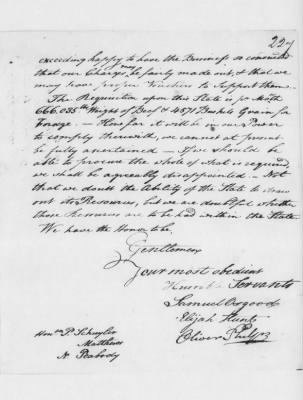 227
exceeding happy to have the Business so conducted
that our Charges may be fairly made out, & that we
may have proper Vouchers to Support them —
The Requisition upon this State is for Month
666.035 lb Weight of Beef & 4871 Bushels Grain for
Forage — How far it will be in our Power
to comply therewith, we can not at present
be fully ascertained — If we should be
able to procure the whole of what is required
we shall be agreeably disappointed — Not
that we doubt the Ability of the State to draw
out its Resources, but we are doubtful whether
those Resources are to be had within the State
We have the Honor to be,
Gentlemen
Your most obedient
Humble Servants
Samuel Osgood
Elijah Hunt
Oliver Phelps
Honble P. Schuyler
Matthews
N. Peabody